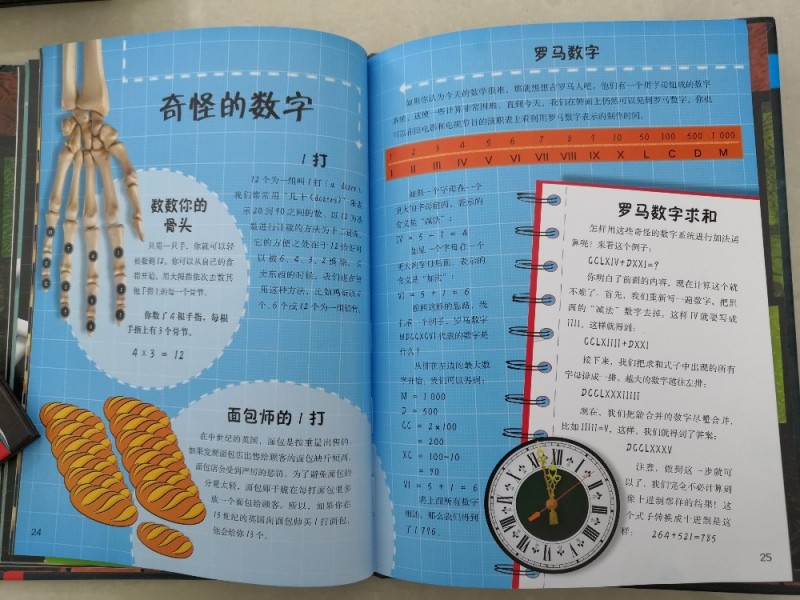 奇怪的数字
1 打
12 个为一组叫 1 打（a dozen）。
我们常常用“几十（dozens）”来表
示 20 到 90 之间的数。以 12 为基
数进行计数的方法为十二进制，
它的方便之处在于 12 恰好可
以被 6、4、3、2 整除。在
买东西的时候，我们还在使
用这种方法，比如两打
个、6 个或 12 个为一组销售。
数数你的
骨头
只用一只手，你就可以轻
松数到 12。你可以从自己的食
指开始，用大拇指依次去数其
他手指上的每一个骨节。
你数了 4 根手指，每根
手指上有 3 个骨节。
4 × 3 = 12
面包师的 1 打
在中世纪的英国，面包是按重量出售的。
如果发现面包店出售给顾客的面包缺斤短两，
面包店会受到严厉的惩罚。为了避免面包的
分量太轻，面包师干脆在每打面包里多
放一个面包给顾客。所以，如果你在
13 世纪的英国向面包师买 1 打面包，
他会给你 13 个。
24
罗马数字
如果你认为今天的数学很难，那就想想古罗马人吧。他们有一个用字母组成的数字
系统，这使一些计算非常困难。直到今天，我们在钟面上仍然可以见到罗马数字，你也
可以在旧电影和电视节目的演职表上看到用罗马数字表示的制作时间。
1 2 3 4 5 6 7 8 9 10 50 100 500 1 000
I II III IV V VI VII VIII IX X L C D M
如果一个字母在一个
更大的字母前面，表示的
含义是“减法”：
IV = 5 - 1 = 4
如果一个字母在一个
更大的字母后面，表示的
含义是“加法”：
VI = 5 + 1 = 6
按照这样的思路，我
们看一个例子。罗马数字
MDCCXCVI 代表的数字是
什么？
从排在左边的最大数
字开始，我们可以得到：
M = 1 000
D = 500
CC = 2×100
= 200
XC = 100-10
= 90
VI = 5 + 1 = 6
把上面所有数字
相加，那么我们得到
了 1 796。
罗马数字求和
怎样用这些奇怪的数字系统进行加法运
算呢？来看这个例子：
CCLXIV+DXXI=?
你明白了前面的内容，现在计算这个就
不难了。首先，我们重新写一遍数字，把里
面的“减法”数字去掉，这样 IV 就要写成
IIII。这样就得到：
CCLXIIII+DXXI
接下来，我们把求和式子中出现的所有
字母排成一排，越大的数字越往左排：
DCCLXXXIIIII
现在，我们把能合并的数字尽量合并，
比如 IIIII=V，这样，我们就得到了答案：
DCCLXXXV
注意，做到这一步就可
以了，我们完全不必计算到
像十进制那样的结果！这
个式子转换成十进制是这
样： 264+521=785
25